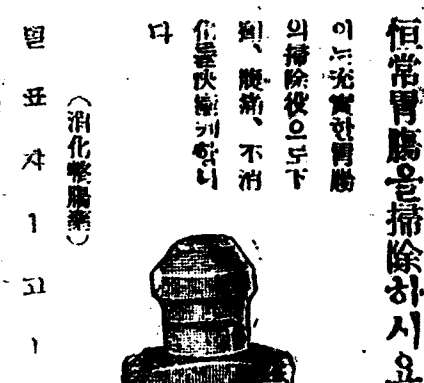 恒常胃膓을掃除하시요
이는充實한胃膓
의掃除役으로下
痢、腹痛、不消
化를快癒케합니
다
(消化整膓藥)
별표쟈ㅣ고ㅣ